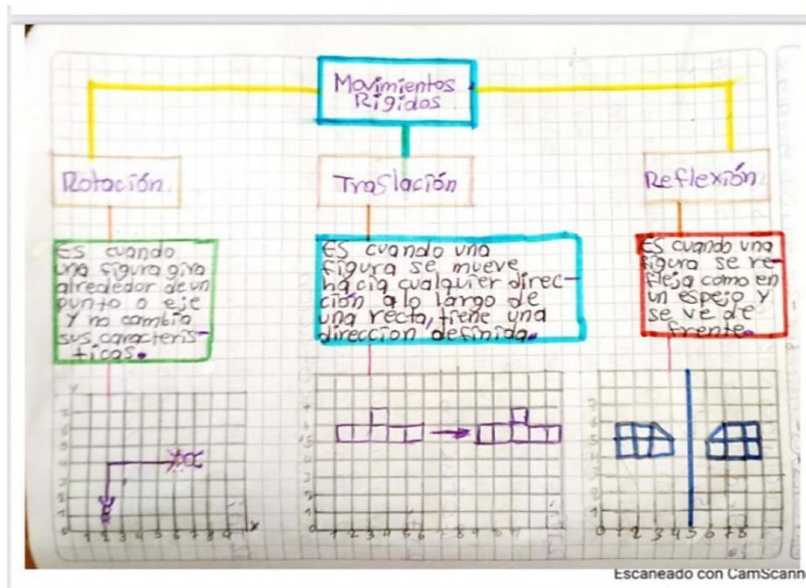 Movimientos
Rígidos
Rotación.
Traslación
Reflexión
Es cuando
una figura gira
alrededor de un
punto o eje
y no cambia
sus caracterís-
ticas.
Es cuando una
figura se mueve
hacia cualquier direc-
ción a lo largo de
una recta, tiene una
dirección definida.
Es cuando una
figura se re-
fleja como en
un espejo y
se ve de
frente.
Escaneado con CamScann